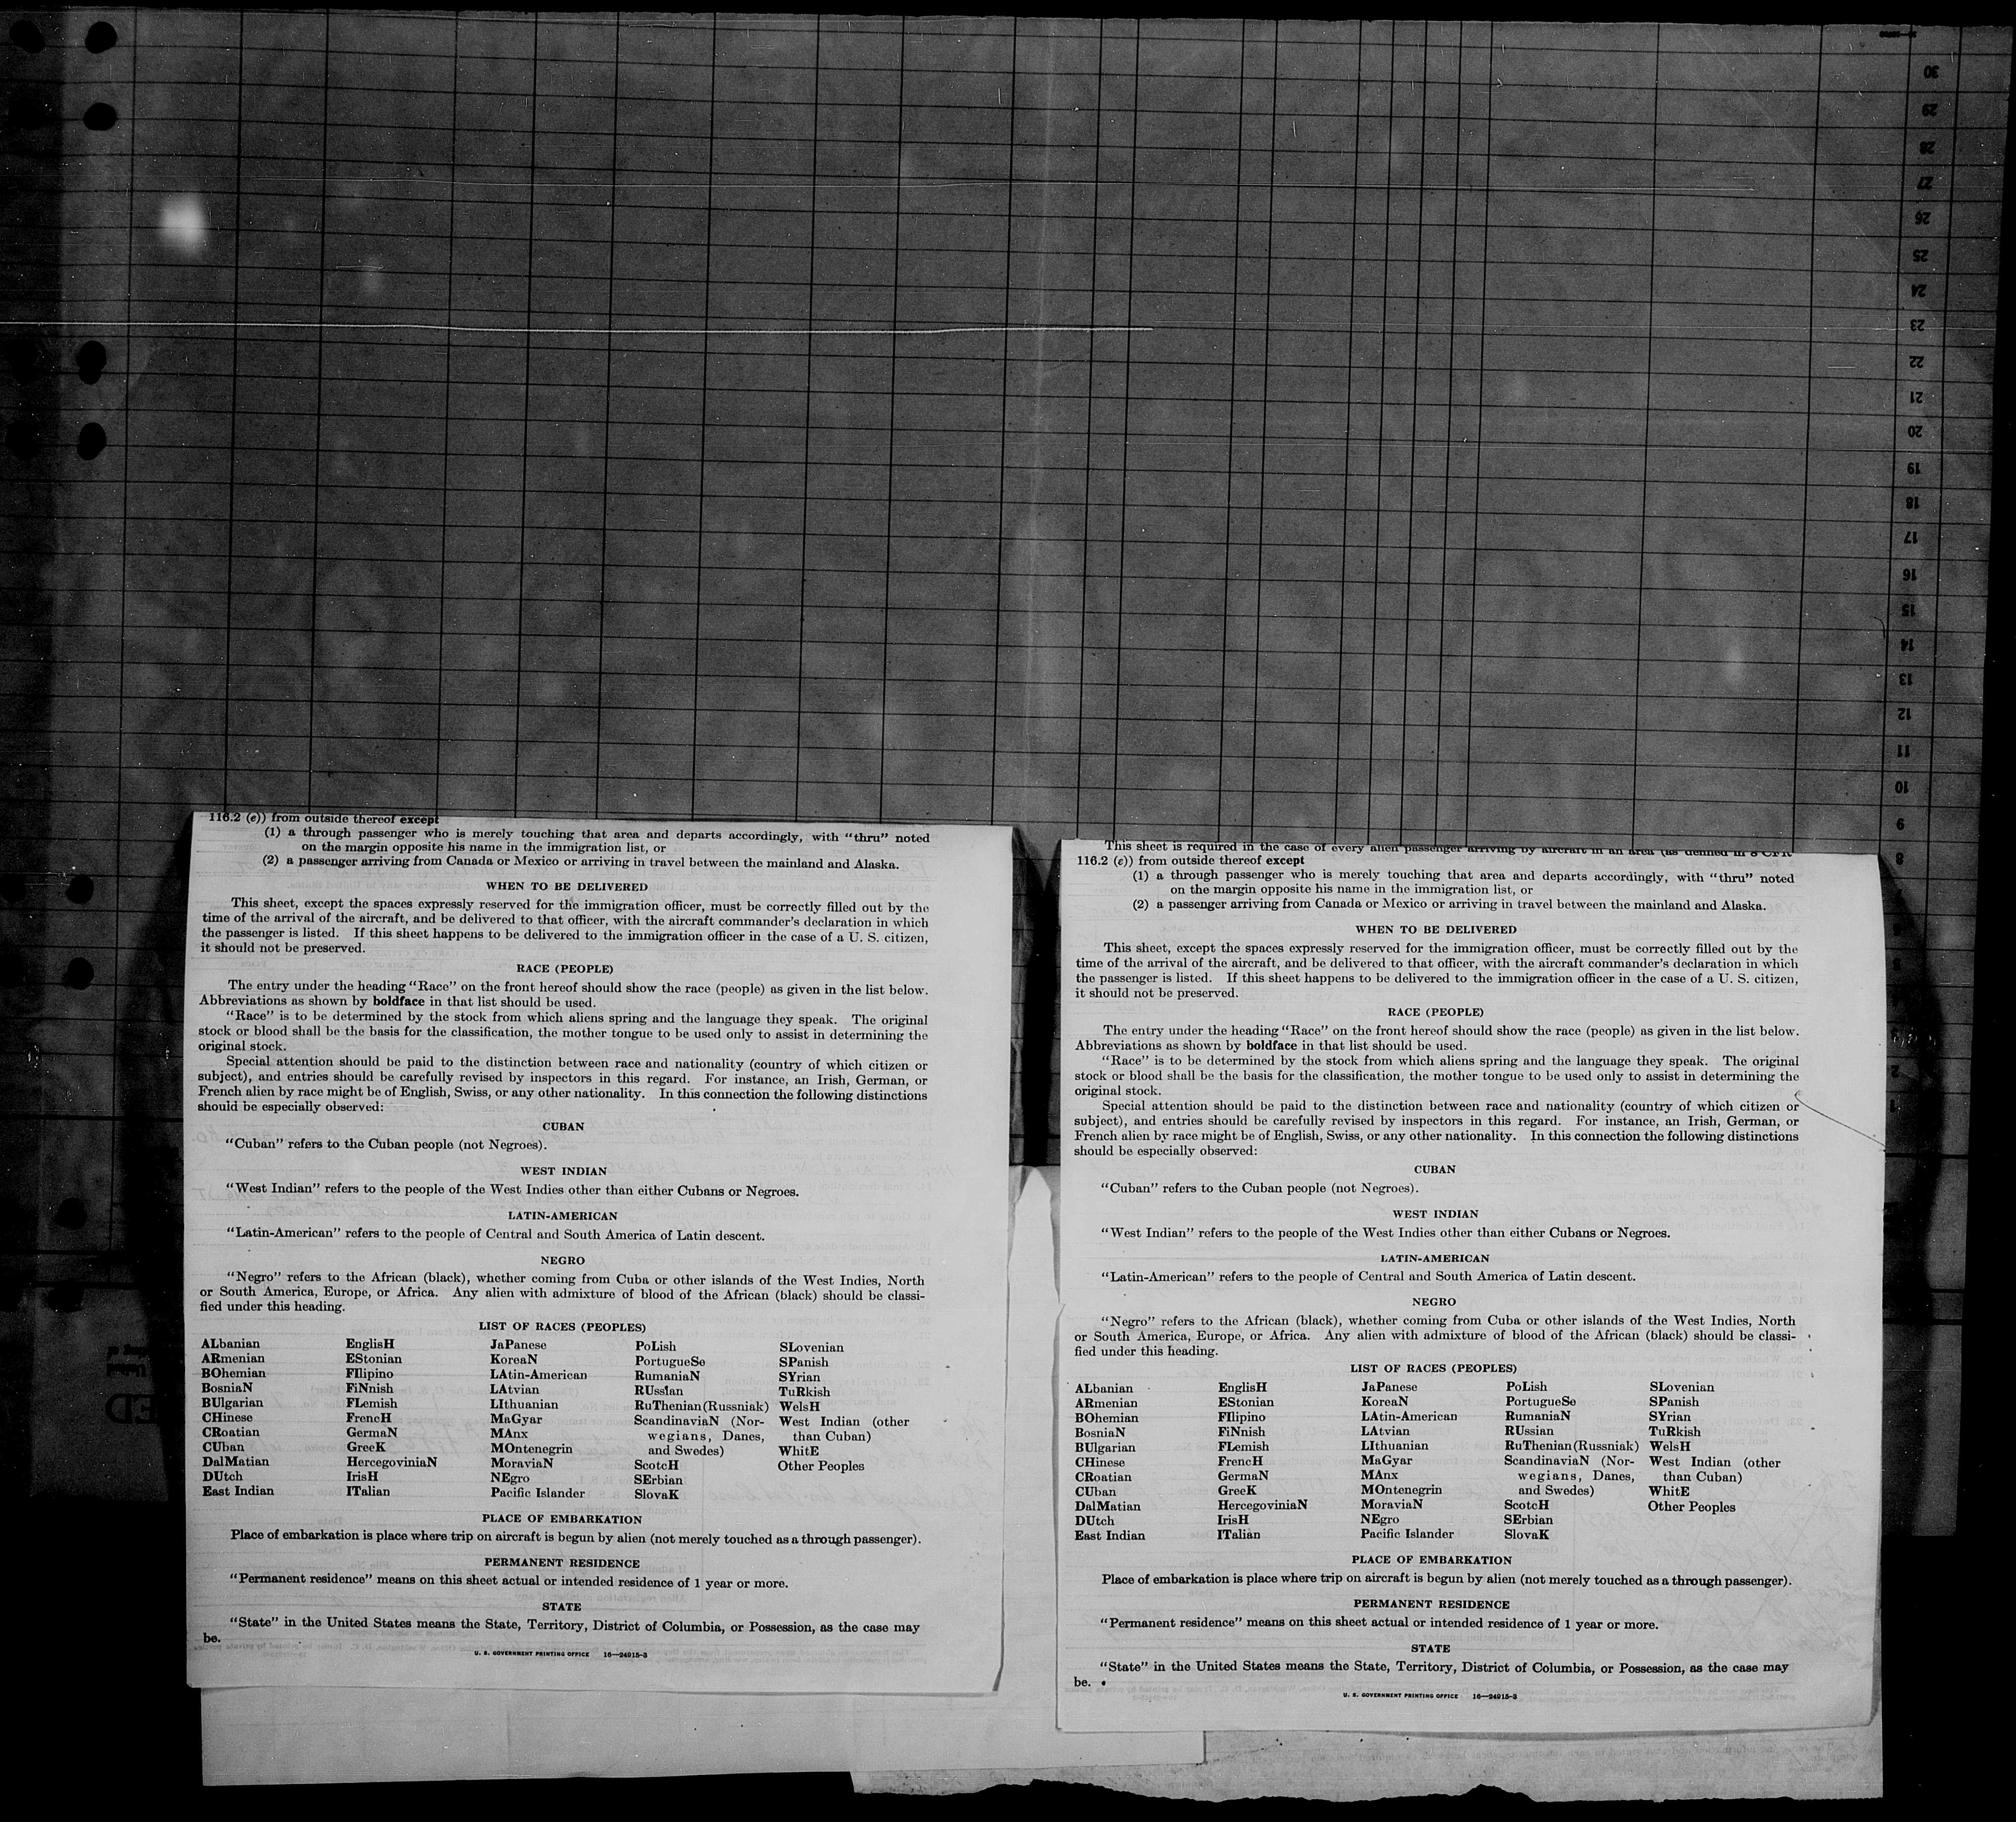 30
29
28
27
26
25
24
23
22
21
20
19
18
17
16
15
14
13
12
11
10
9
8
2
1
116.2 (e)) from outside thereof except
(1) a through passenger who is merely touching that area and departs accordingly, with "thru" noted
on the margin opposite his name in the immigration list, or
(2) a passenger arriving from Canada or Mexico or arriving in travel between the mainland and Alaska.
WHEN TO BE DELIVERED
This sheet, except the spaces expressly reserved for the immigration officer, must be correctly filled out by the
time of the arrival of the aircraft, and be delivered to that officer, with the aircraft commander's declaration in which
the passenger is listed. If this sheet happens to be delivered to the immigration officer in the case of a U. S. citizen,
it should not be preserved.
RACE (PEOPLE)
The entry under the heading "Race" on the front hereof should show the race (people) as given in the list below.
Abbreviations as shown by boldface in that list should be used.
"Race" is to be determined by the stock from which aliens spring and the language they speak. The original
stock or blood shall be the basis for the classification, the mother tongue to be used only to assist in determining the
original stock.
Special attention should be paid to the distinction between race and nationality (country of which citizen or
subject), and entries should be carefully revised by inspectors in this regard. For instance, an Irish, German, or
French alien by race might be of English, Swiss, or any other nationality. In this connection the following distinctions
should be especially observed:
CUBAN
"Cuban" refers to the Cuban people (not Negroes).
WEST INDIAN
"West Indian" refers to the people of the West Indies other than either Cubans or Negroes.
LATIN-AMERICAN
"Latin-American" refers to the people of Central and South America of Latin descent.
NEGRO
"Negro" refers to the African (black), whether coming from Cuba or other islands of the West Indies, North
or South America, Europe, or Africa. Any alien with admixture of blood of the African (black) should be classi-
fied under this heading.
LIST OF RACES (PEOPLES)
ALbanian
ARmenian
BOhemian
BosniaN
BUlgarian
CHinese
CRoatian
CUban
DalMatian
DUtch
East Indian
EnglisH
EStonian
FIlipino
FiNnish
FLemish
FrencH
GermaN
GreeK
HercegoviniaN
IrisH
ITalian
JaPanese
KoreaN
LAtin-American
LAtvian
LIthuanian
MaGyar
MAnx
MOntenegrin
MoraviaN
NEgro
Pacific Islander
PoLish
PortugueSe
RumaniaN
RUssian
RuThenian (Russniak)
ScandinaviaN (Nor-
wegians, Danes,
and Swedes)
ScotcH
SErbian
SlovaK
SLovenian
SPanish
SYrian
TuRkish
WelsH
West Indian (other
than Cuban)
WhitE
Other Peoples
PLACE OF EMBARKATION
Place of embarkation is place where trip on aircraft is begun by alien (not merely touched as a through passenger).
PERMANENT RESIDENCE
"Permanent residence" means on this sheet actual or intended residence of 1 year or more.
STATE
"State" in the United States means the State, Territory, District of Columbia, or Possession, as the case may
be.
U. S. GOVERNMENT PRINTING OFFICE 16—24915-3
This sheet is required in the case of every alien passenger arriving by aircraft in an area (as defined in 8 CFR
116.2 (e)) from outside thereof except
(1) a through passenger who is merely touching that area and departs accordingly, with "thru" noted
on the margin opposite his name in the immigration list, or
(2) a passenger arriving from Canada or Mexico or arriving in travel between the mainland and Alaska.
WHEN TO BE DELIVERED
This sheet, except the spaces expressly reserved for the immigration officer, must be correctly filled out by the
time of the arrival of the aircraft, and be delivered to that officer, with the aircraft commander's declaration in which
the passenger is listed. If this sheet happens to be delivered to the immigration officer in the case of a U. S. citizen,
it should not be preserved.
RACE (PEOPLE)
The entry under the heading "Race" on the front hereof should show the race (people) as given in the list below.
Abbreviations as shown by boldface in that list should be used.
"Race" is to be determined by the stock from which aliens spring and the language they speak. The original
stock or blood shall be the basis for the classification, the mother tongue to be used only to assist in determining the
original stock.
Special attention should be paid to the distinction between race and nationality (country of which citizen or
subject), and entries should be carefully revised by inspectors in this regard. For instance, an Irish, German, or
French alien by race might be of English, Swiss, or any other nationality. In this connection the following distinctions
should be especially observed:
CUBAN
"Cuban" refers to the Cuban people (not Negroes).
WEST INDIAN
"West Indian" refers to the people of the West Indies other than either Cubans or Negroes.
LATIN-AMERICAN
"Latin-American" refers to the people of Central and South America of Latin descent.
NEGRO
"Negro" refers to the African (black), whether coming from Cuba or other islands of the West Indies, North
or South America, Europe, or Africa. Any alien with admixture of blood of the African (black) should be classi-
fied under this heading.
LIST OF RACES (PEOPLES)
ALbanian
ARmenian
BOhemian
BosniaN
BUlgarian
CHinese
CRoatian
CUban
DalMatian
DUtch
East Indian
EnglisH
EStonian
FIlipino
FiNnish
FLemish
FrencH
GermaN
GreeK
HercegoviniaN
IrisH
ITalian
JaPanese
KoreaN
LAtin-American
LAtvian
LIthuanian
MaGyar
MAnx
MOntenegrin
MoraviaN
NEgro
Pacific Islander
PoLish
PortugueSe
RumaniaN
RUssian
RuThenian (Russniak)
ScandinaviaN (Nor-
wegians, Danes,
and Swedes)
ScotcH
SErbian
SlovaK
SLovenian
SPanish
SYrian
TuRkish
WelsH
West Indian (other
than Cuban)
WhitE
Other Peoples
PLACE OF EMBARKATION
Place of embarkation is place where trip on aircraft is begun by alien (not merely touched as a through passenger).
PERMANENT RESIDENCE
"Permanent residence" means on this sheet actual or intended residence of 1 year or more.
STATE
"State" in the United States means the State, Territory, District of Columbia, or Possession, as the case may
be.
U. S. GOVERNMENT PRINTING OFFICE 16—24915-3